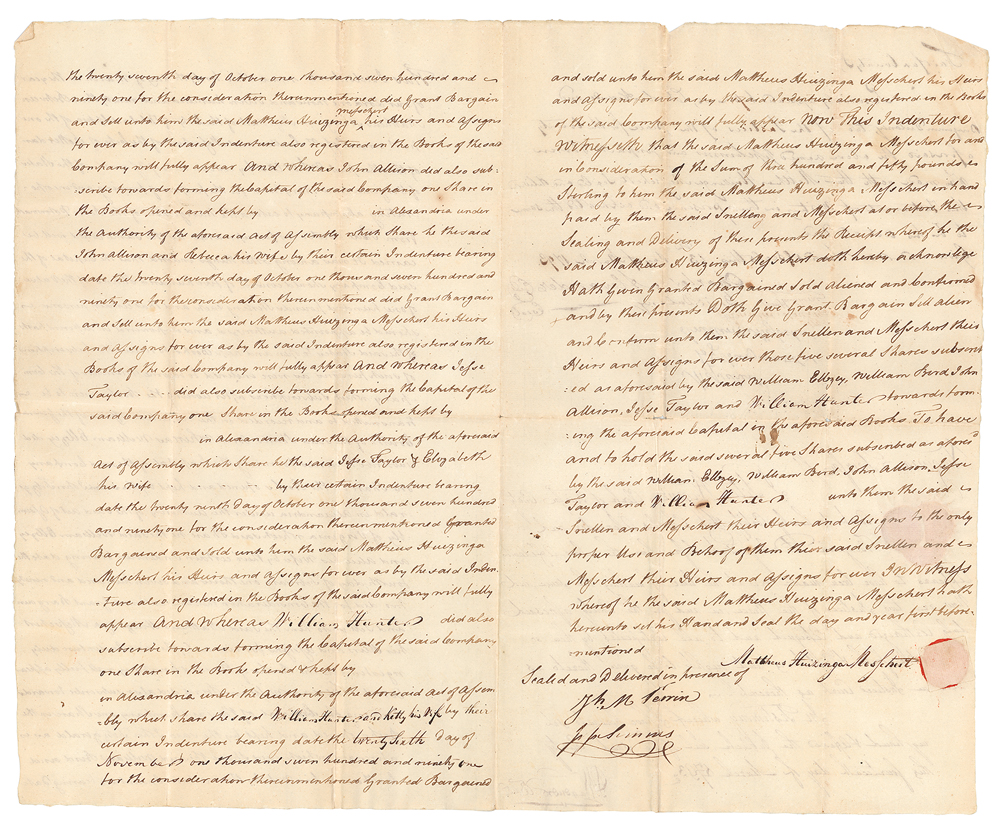 the twenty seventh day of October one thousand seven hundred and
ninety one for the consideration thereinmentioned did Grant Bargain
and Sell unto him the said Mattheus Huizinga Messchert his Heirs and Assigns
for ever as by the said Indenture also registered in the Books of the said
Company will fully appear And whereas John Allison did also sub-
scribe towards forming the Capital of the said Company one Share in
the Books opened and kept by in Alexandria under
the Authority of the aforesaid Act of Assembly which Share he the said
John Allison and Rebecca his Wife by their certain Indenture bearing
date the twenty seventh day of October one thousand and seven hundred and
ninety one for the consideration thereinmentioned did Grant Bargain
and Sell unto him the said Mattheus Huizinga Messchert his Heirs
and Assigns for ever as by the said Indenture also registered in the
Books of the said Company will fully appear And whereas Jesse
Taylor did also subscribe towards forming the Capital of the
said Company one Share in the Books opened and kept by
in Alexandria under the Authority of the aforesaid
Act of Assembly which Share he the said Jesse Taylor & Elizabeth
his Wife by their certain Indenture bearing
date the twenty ninth day of October one thousand seven hundred
and ninety one for the consideration thereinmentioned Granted
Bargained and Sold unto him the said Mattheus Huizinga
Messchert his Heirs and Assigns for ever as by the said Inden-
-ture also registered in the Books of the said Company will fully
appear And whereas William Hunter did also
subscribe towards forming the Capital of the said Company
one Share in the Books opened & kept by
in Alexandria under the Authority of the aforesaid Act of Assem-
-bly which share the said William Hunter and Kitty his Wife by their
certain Indenture bearing date the twenty Sixth day of
November one thousand seven hundred and ninety one
for the consideration thereinmentioned Granted Bargained
and sold unto him the said Mattheus Huizinga Messchert his Heirs
and Assigns for ever as by the said Indenture also registered in the Books
of the said Company will fully appear Now This Indenture
Witnesseth that the said Mattheus Huizinga Messchert for and
in Consideration of the Sum of three hundred and fifty pounds
Sterling to him the said Mattheus Huizinga Messchert in hand
paid by them the said Snellen and Messchert at or before the
Sealing and Delivery of these presents the Receipt whereof he the
said Mattheus Huizinga Messchert doth hereby acknowlege
Hath Given Granted Bargained Sold Aliened and Confirmed
and by these presents Doth Give Grant Bargain Sell alien
and Confirm unto them the said Snellen and Messchert their
Heirs and Assigns for ever those five several Shares subscrib
:ed as aforesaid by the said William Ellzey, William Bird, John
Allison, Jesse Taylor and William Hunter towards form-
:ing the aforesaid Capital in the aforesaid Books To have
and to hold the said several five Shares subscribed as afores'd
by the said William Ellzey, William Bird, John Allison, Jesse
Taylor and William Hunter unto them the said
Snellen and Messchert their Heirs and Assigns to the only
proper Use and Behoof of them their said Snellen and
Messchert their Heirs and Assigns for ever In Witness
whereof he the said Mattheus Huizinga Messchert hath
hereunto set his Hand and Seal the day and year first before-
-mentioned
Mattheus Huizinga Messchert
Sealed and Delivered in presence of
Perrin
Simms